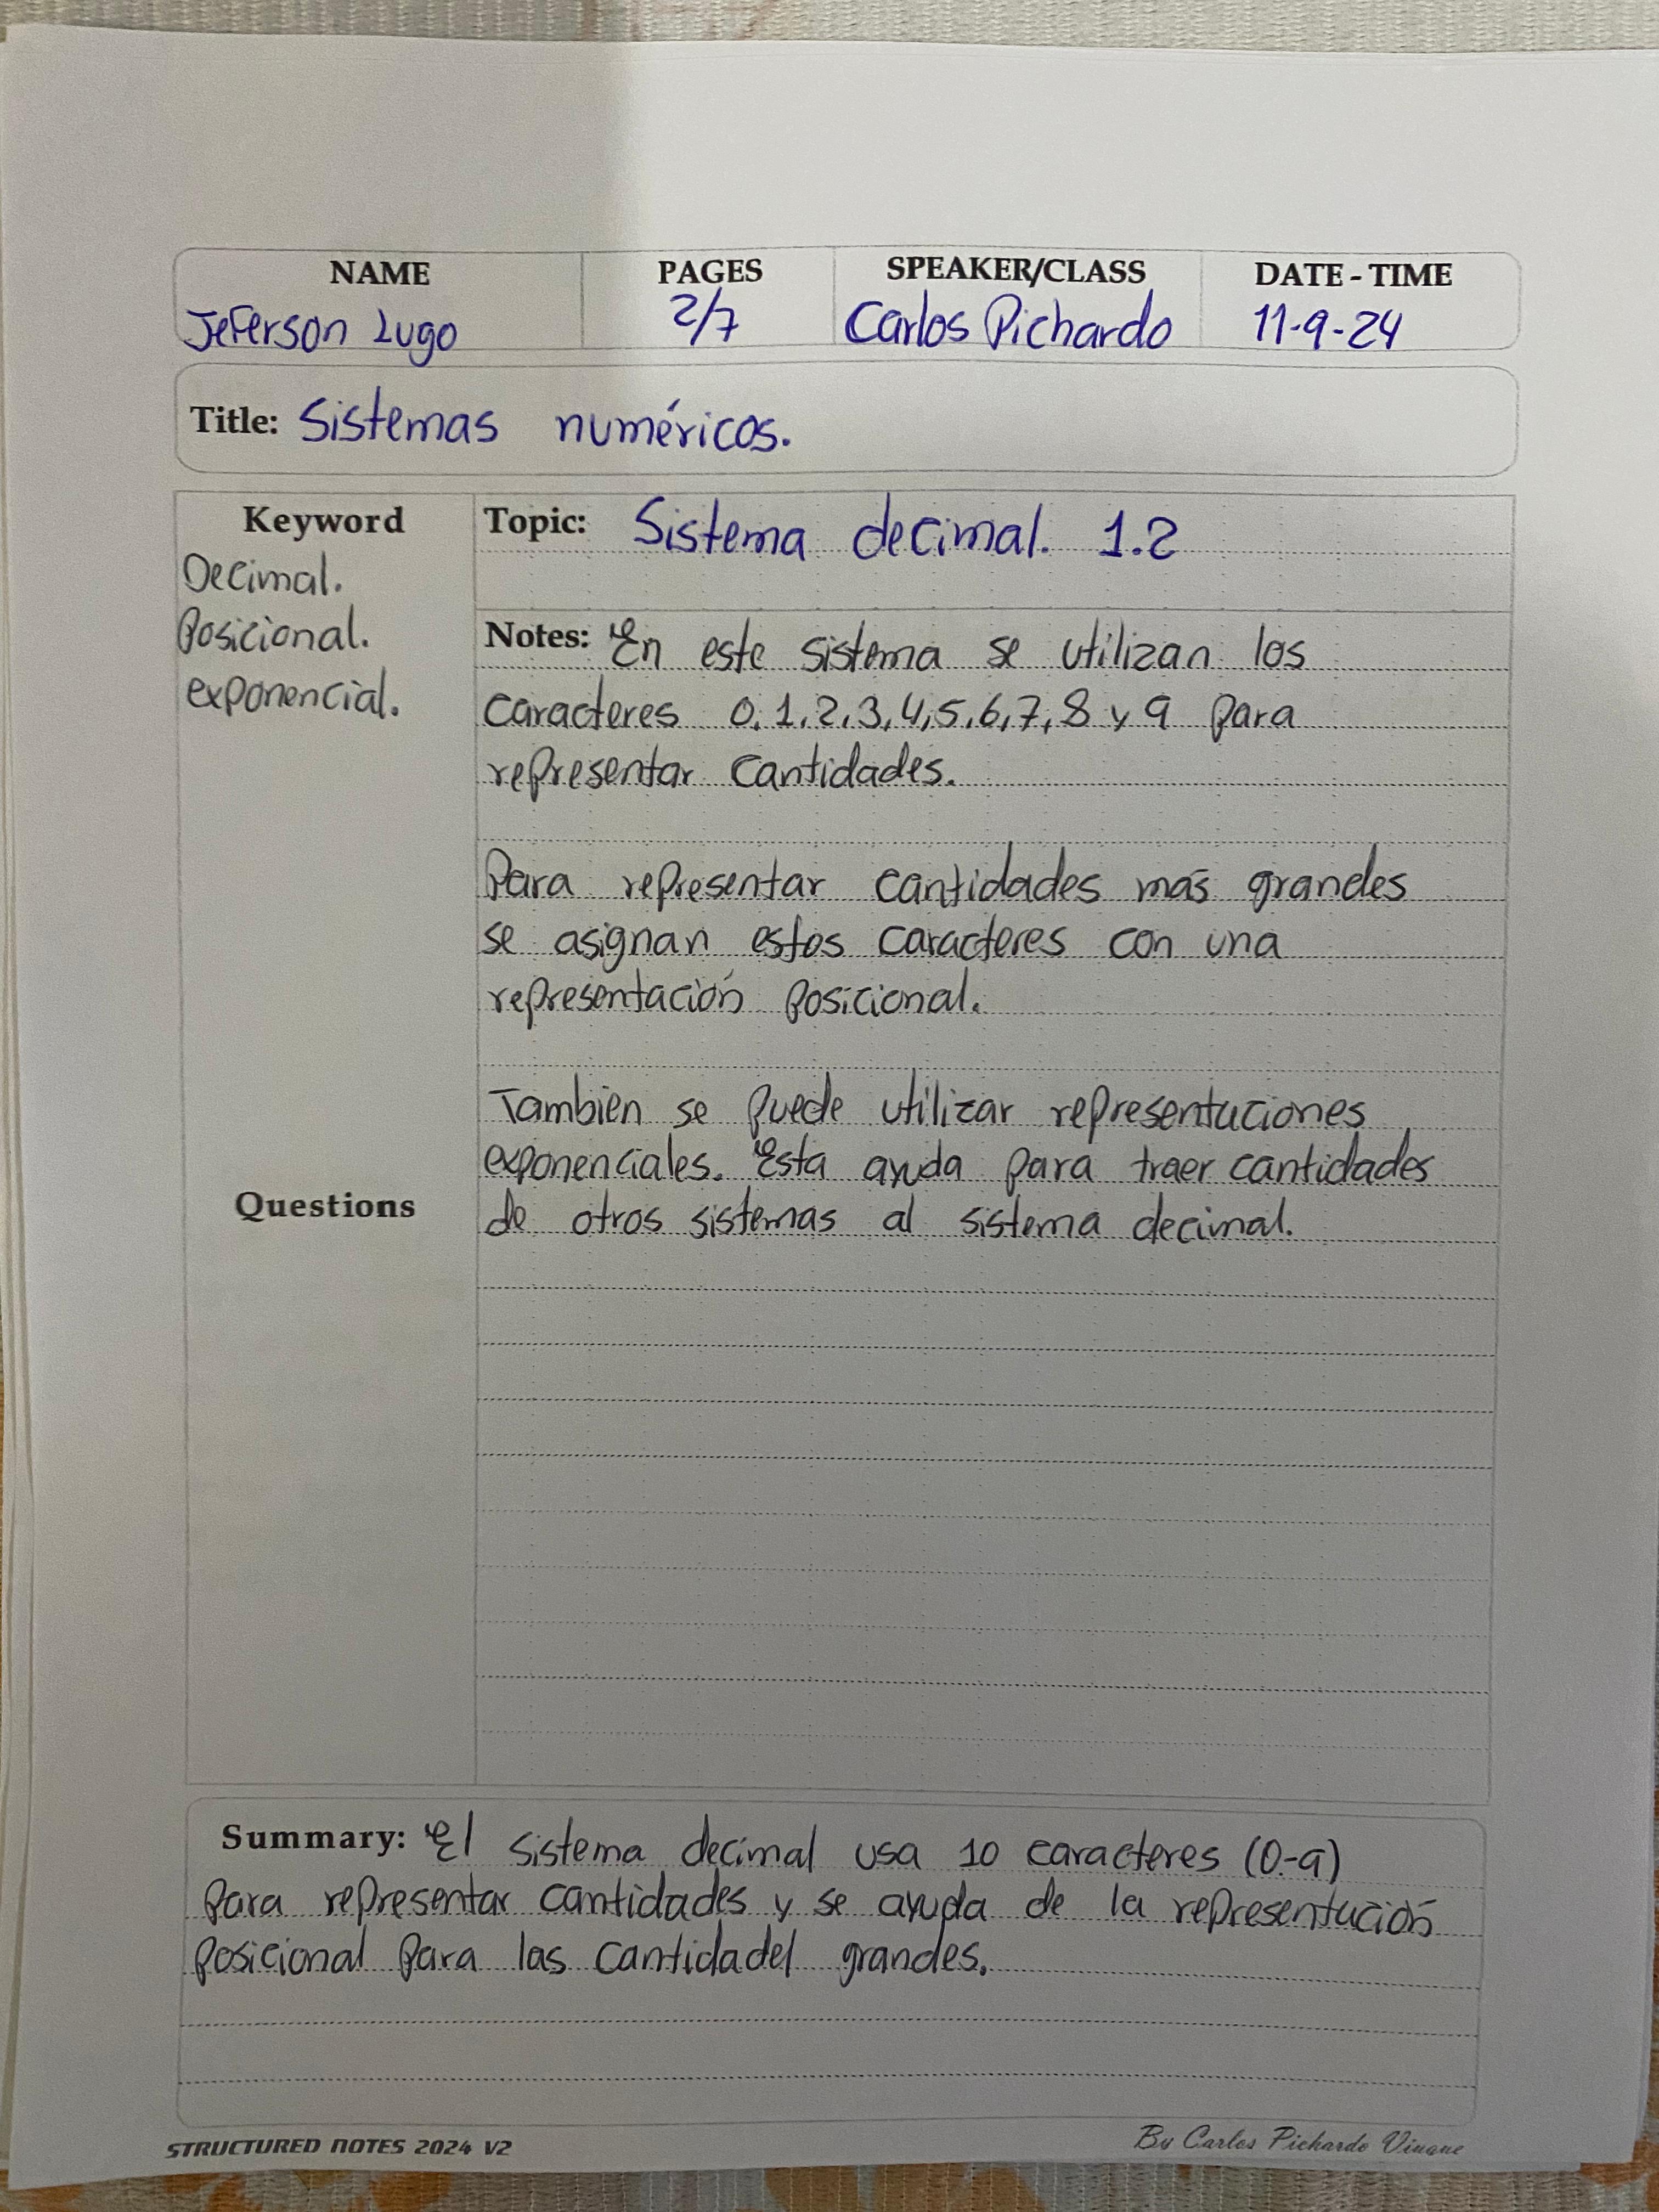 NAME PAGES SPEAKER/CLASS DATE - TIME
Jeferson Lugo 2/7 Carlos Pichardo 11-9-24
Title: Sistemas numéricos.
Keyword
Decimal.
Posicional.
exponencial.
Topic: Sistema decimal. 1.2
Notes: En este sistema se utilizan los
caracteres 0,1,2,3,4,5,6,7,8 y 9 para
representar cantidades.
Para representar cantidades más grandes
se asignan estos caracteres con una
representación posicional.
Tambien se puede utilizar representaciones
exponenciales. Esta ayuda para traer cantidades
de otros sistemas al sistema decimal.
Questions
Summary: El sistema decimal usa 10 caracteres (0-9)
para representar cantidades y se ayuda de la representación
posicional para las cantidadel grandes.
STRUCTURED NOTES 2024 V2 By Carlos Pichardo Viuque